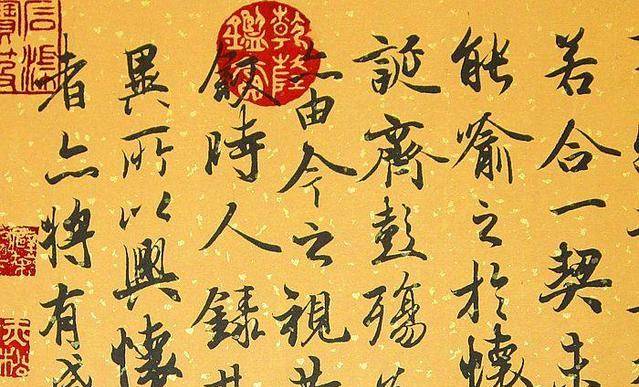 若合一契未
能喻之於懷
誕齊彭殤
亦由今之視
敘時人錄其
異所以興懷
者亦將有感
乾隆
鑑賞
石渠
寶笈